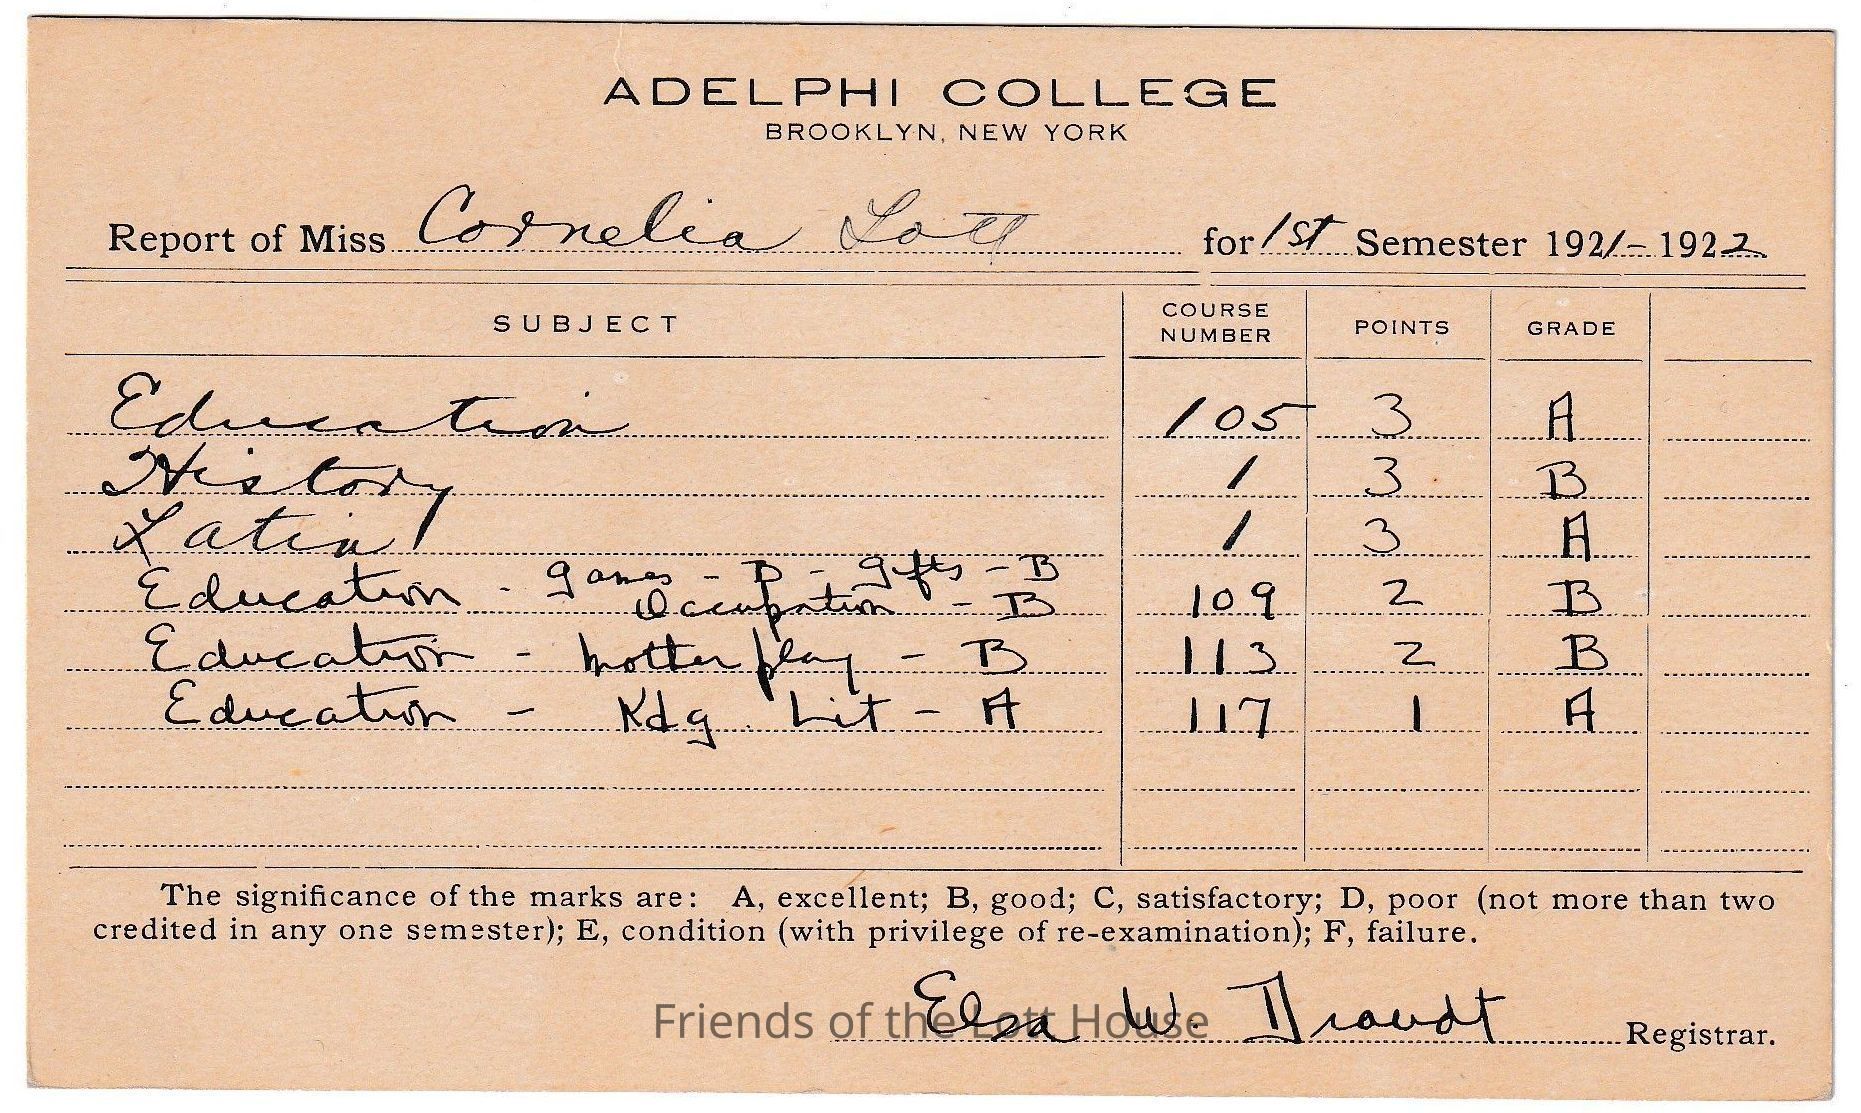 ADELPHI COLLEGE
BROOKLYN, NEW YORK
Report of Miss Cornelia Lott for 1st Semester 1921-1922
SUBJECT COURSE NUMBER POINTS GRADE
Education 105 3 A
History 1 3 B
Latin 1 3 A
Education - games - D - gifts - B
Occupation - B 109 2 B
Education - Mother play - B 113 2 B
Education - Kdg. Lit - A 117 1 A
The significance of the marks are: A, excellent; B, good; C, satisfactory; D, poor (not more than two
credited in any one semester); E, condition (with privilege of re-examination); F, failure.
Elsa W. Registrar.
Friends of the Lott House